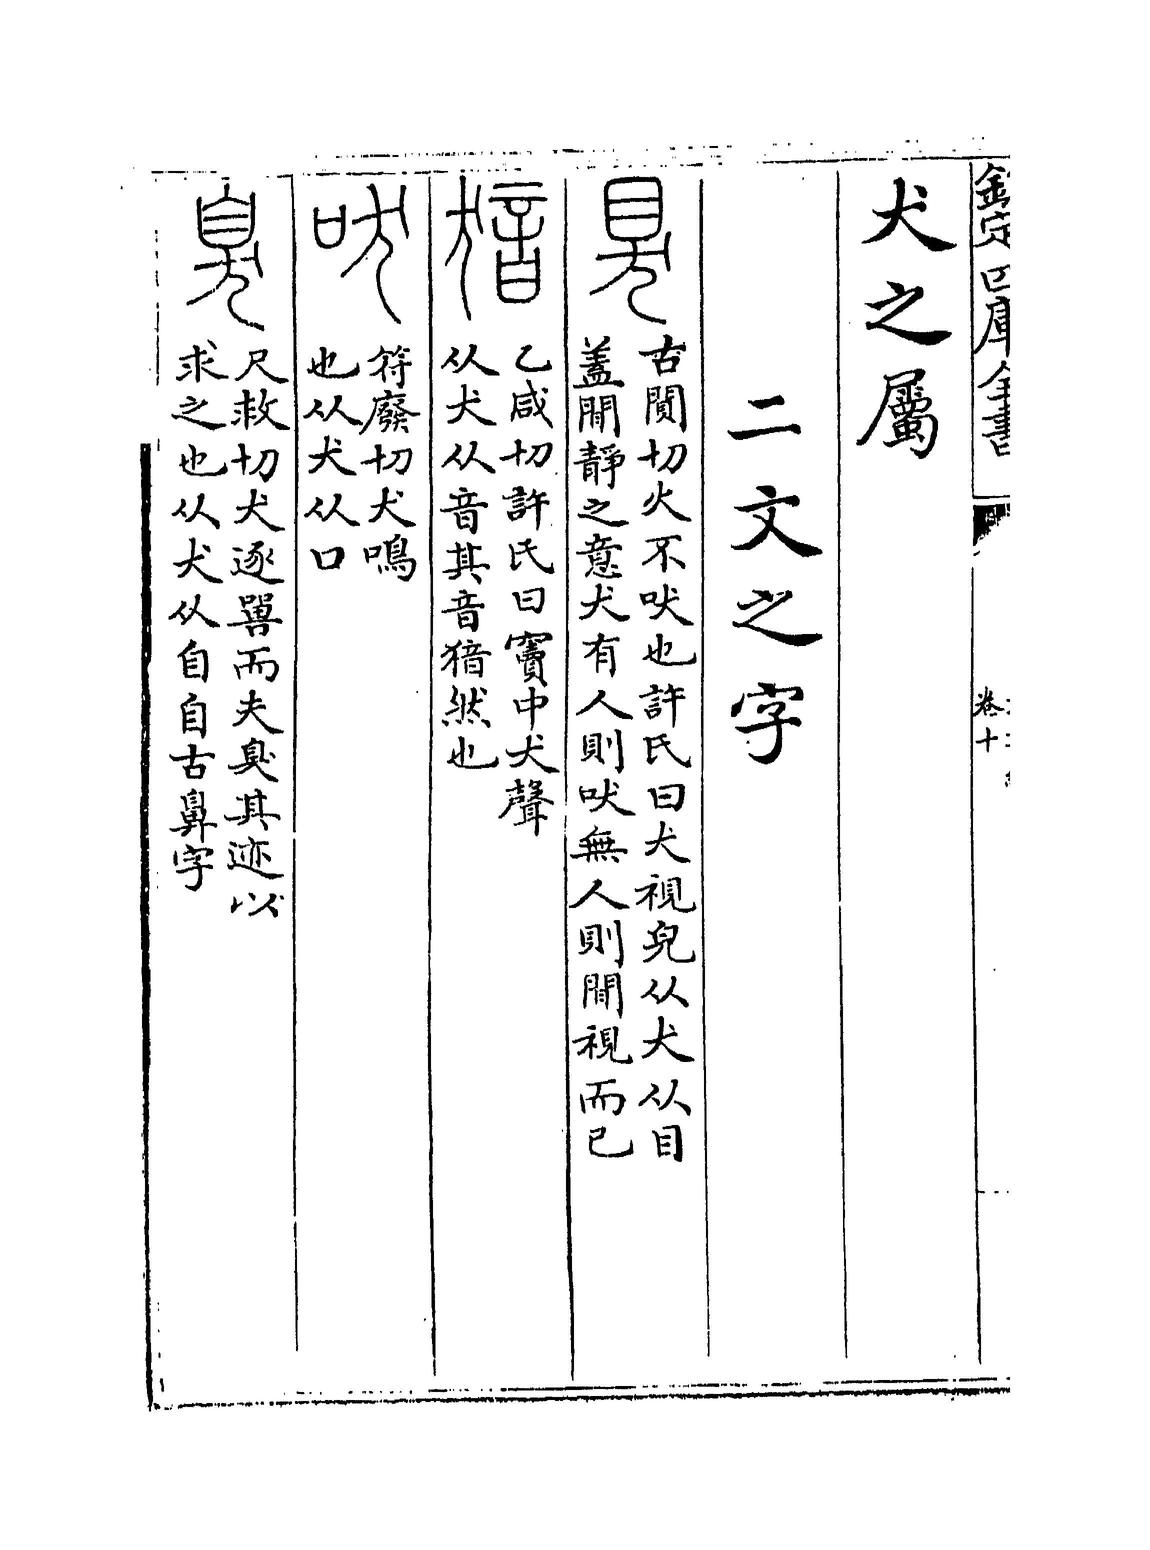 欽定四庫全書
卷十
犬之屬
二文之字
狊 古闃切火不吠也許氏曰犬視皃从犬从目
蓋閴靜之意犬有人則吠無人則閴視而已
猹
乙咸切許氏曰竇中犬聲
从犬从音其音猎然也
吠 符廢切犬鳴
也从犬从口
臭 尺救切犬逐嘼而夫臭其迹以
求之也从犬从自自古鼻字